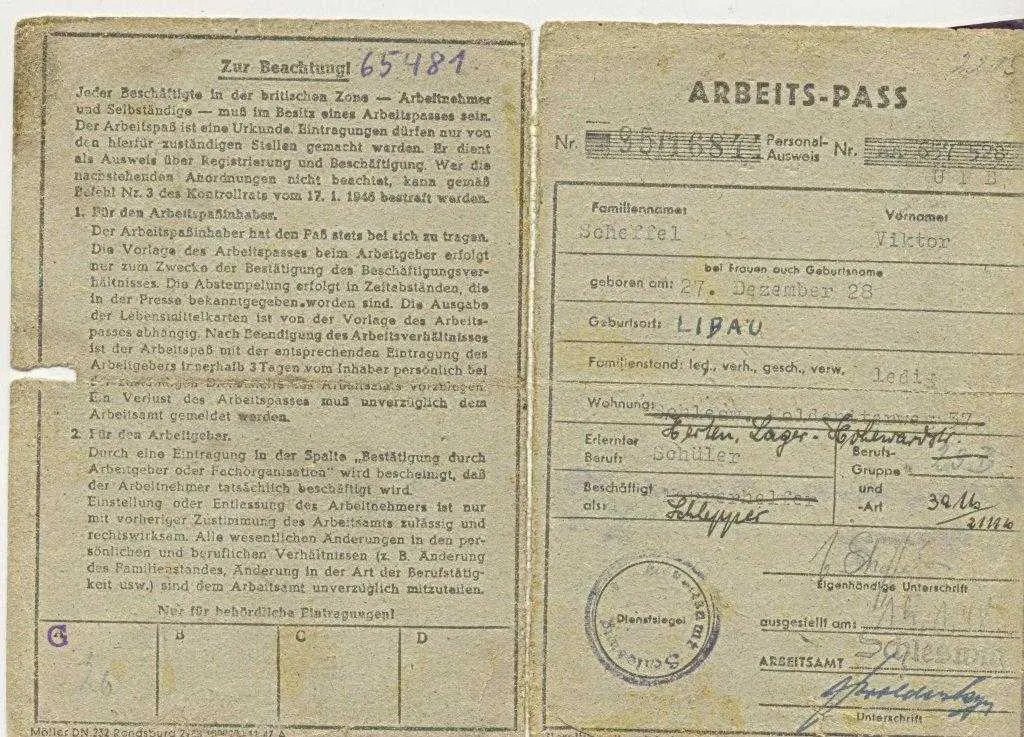 Zur Beachtung! 65481.
Jeder Beschäftigte in der britischen Zone — Arbeitnehmer
und Selbständige — muß im Besitz eines Arbeitspasses sein.
Der Arbeitspaß ist eine Urkunde. Eintragungen dürfen nur von
den hierfür zuständigen Stellen gemacht werden. Er dient
als Ausweis über Registrierung und Beschäftigung. Wer die
nachstehenden Anordnungen nicht beachtet, kann gemäß
Befehl Nr. 3 des Kontrollrats vom 17. 1. 1946 bestraft werden.
1. Für den Arbeitspaßinhaber.
Der Arbeitspaßinhaber hat den Paß stets bei sich zu tragen.
Die Vorlage des Arbeitspasses beim Arbeitgeber erfolgt
nur zum Zwecke der Bestätigung des Beschäftigungsver-
hältnisses. Die Abstempelung erfolgt in Zeitabständen, die
in der Presse bekanntgegeben worden sind. Die Ausgabe
der Lebensmittelkarten ist von der Vorlage des Arbeits-
passes abhängig. Nach Beendigung des Arbeitsverhältnisses
ist der Arbeitspaß mit der entsprechenden Eintragung des
Arbeitgebers innerhalb 3 Tagen vom Inhaber persönlich bei
der zuständigen Dienststelle des Arbeitsamts vorzulegen.
Ein Verlust des Arbeitspasses muß unverzüglich dem
Arbeitsamt gemeldet werden.
2. Für den Arbeitgeber.
Durch eine Eintragung in der Spalte „Bestätigung durch
Arbeitgeber oder Fachorganisation" wird bescheinigt, daß
der Arbeitnehmer tatsächlich beschäftigt wird.
Einstellung oder Entlassung des Arbeitnehmers ist nur
mit vorheriger Zustimmung des Arbeitsamts zulässig und
rechtswirksam. Alle wesentlichen Änderungen in den per-
sönlichen und beruflichen Verhältnissen (z. B. Änderung
des Familienstandes, Änderung in der Art der Berufstätig-
keit usw.) sind dem Arbeitsamt unverzüglich mitzuteilen.
Nur für behördliche Eintragungen!
A B C D
G
Möller DN 232 Rendsburg
ARBEITS-PASS
Nr. 95/1684 Personal-Ausweis Nr.
Familienname: Vorname:
Scheffel Viktor
bei Frauen auch Geburtsname
geboren am: 27. Dezember 28
Geburtsort: LIBAU
Familienstand: led., verh., gesch., verw. ledig
Wohnung: 37
Herten, Lager - Hohewardstr.
Erlernter Beruf: Schüler
Berufs-Gruppe und -Art
Beschäftigt als: Schlepper
Eigenhändige Unterschrift
Dienstsiegel
ausgestellt am:
ARBEITSAMT Schleswig
Unterschrift